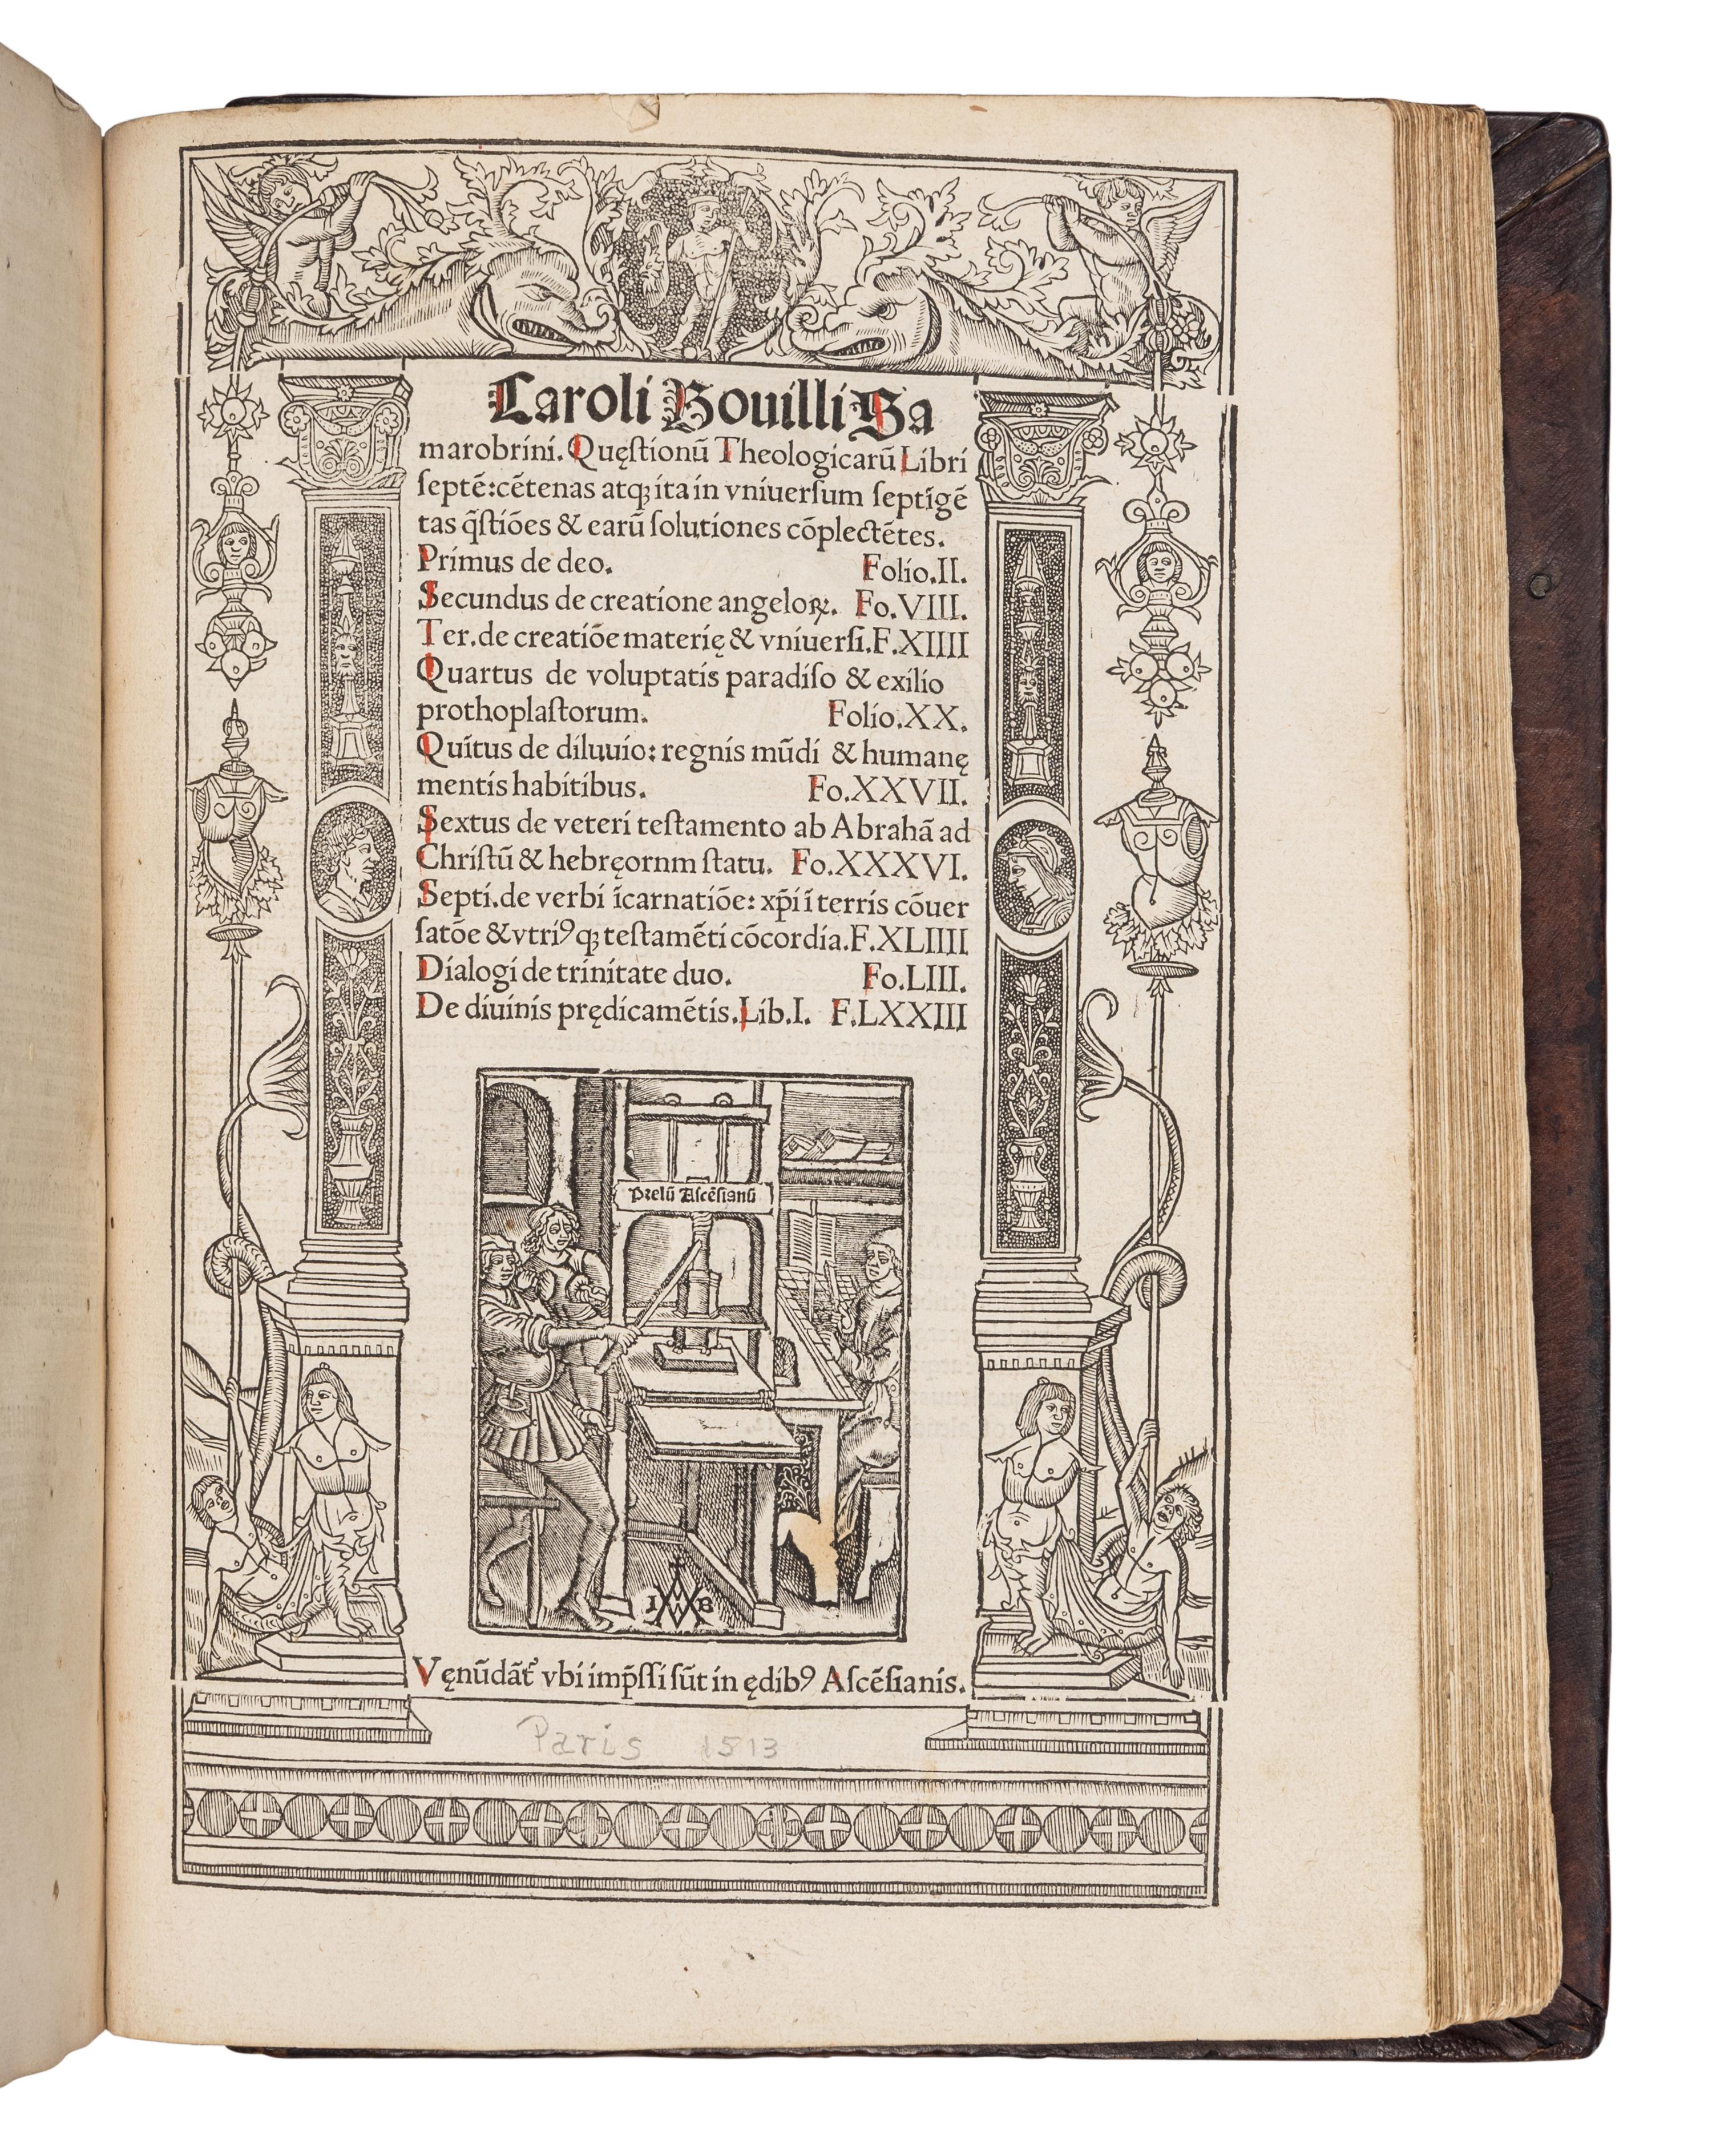 Caroli Bouilli Sa
marobrini. Quęſtionū Theologicarū Libri
ſeptē: cētenas atqꝫ ita in vniuerſum ſeptīgē
tas q̄ſtiōes & earū ſolutiones cōplectētes.
Primus de deo. Folio.II.
Secundus de creatione angeloꝝ. Fo.VIII.
Ter. de creatiōe materię & vniuerſi. F.XIIII
Quartus de voluptatis paradiſo & exilio
prothoplaſtorum. Folio.XX.
Quītus de diluuio: regnis mūdi & humanę
mentis habitibus. Fo.XXVII.
Sextus de veteri teſtamento ab Abrahā ad
Chriſtū & hebręornm ſtatu. Fo.XXXVI.
Septi. de verbi īcarnatiōe: xp̄i ī terris cōuer
ſatōe & vtriꝰqꝫ teſtamēti cōcordia. F.XLIIII
Dialogi de trinitate duo. Fo.LIII.
De diuinis prędicamētis. Lib.I. F.LXXIII
Prelū Aſcēſianū
I B
Vęnūdāt̄ vbi imp̄ſſi ſūt in ędibꝰ Aſcēſianis.
Paris 1513